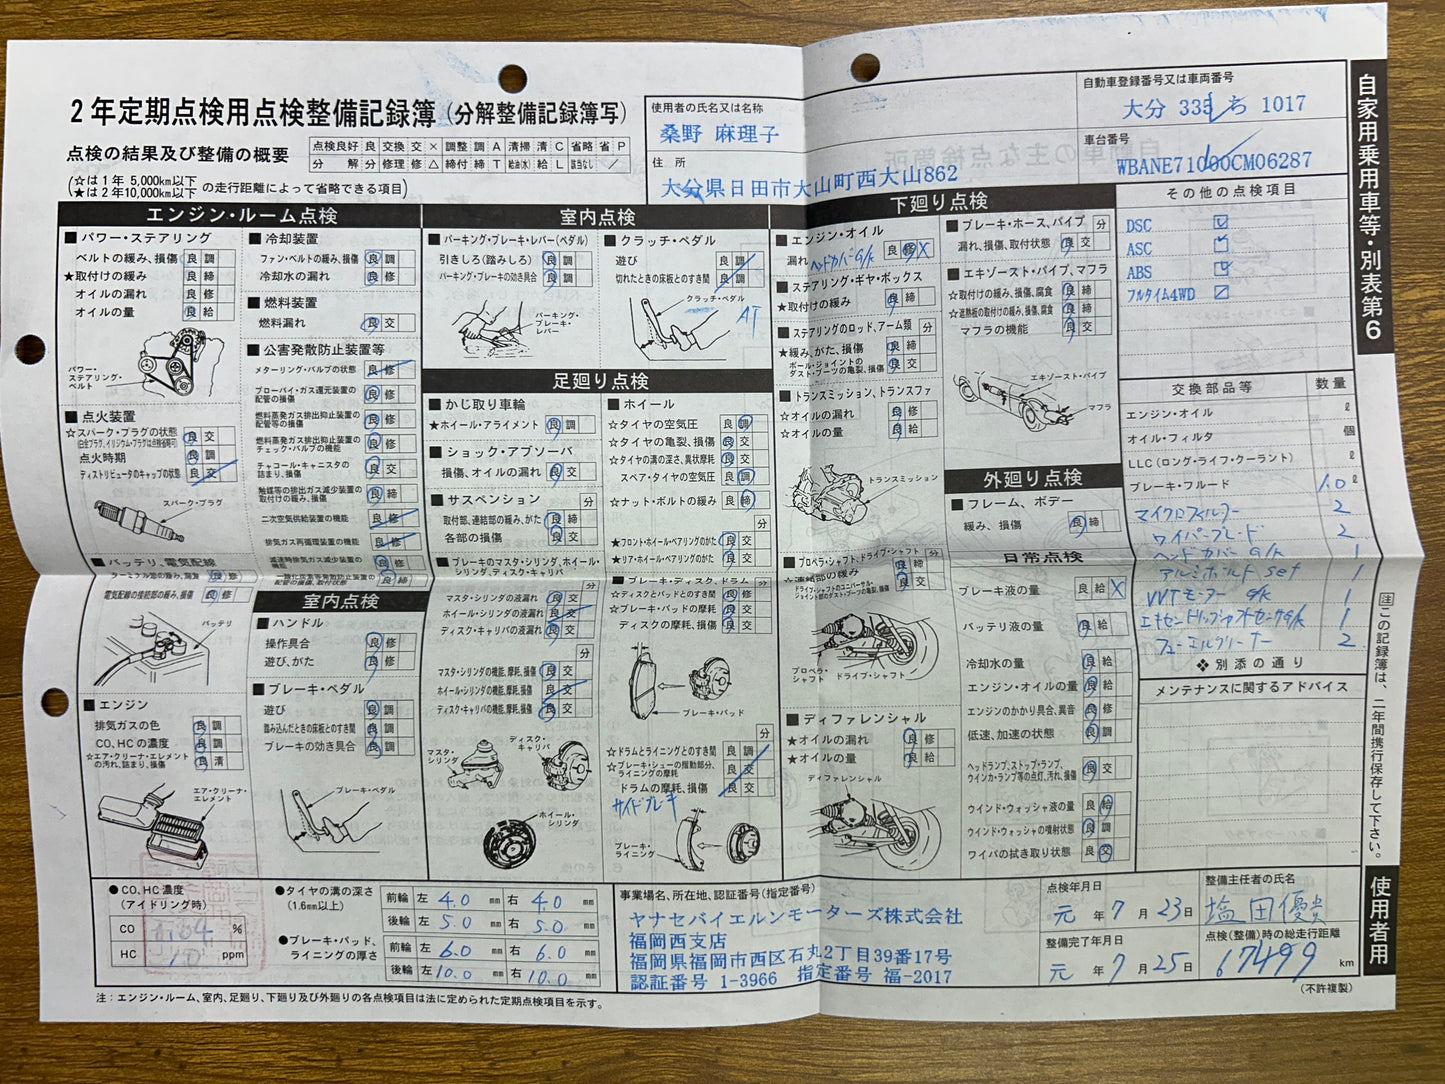 2年定期点検用点検整備記録簿(分解整備記録簿写)
点検の結果及び整備の概要
点検良好 良 交換 交 × 調整 調 A 清掃 清 C 省略 省 P
分解 分 修理 修 △ 締付 締 T 給油(水) 給 L 該当なし ／
(☆は1年 5,000km以下
★は2年10,000km以下 の走行距離によって省略できる項目)
使用者の氏名又は名称
桑野 麻理子
住所
大分県日田市大山町西大山862
自動車登録番号又は車両番号
大分 335 ち 1017
車台番号
WBANE71000CM06287
自家用乗用車等・別表第6
エンジン・ルーム点検
■ パワー・ステアリング
ベルトの緩み、損傷 良 調
★取付けの緩み 良 締
オイルの漏れ 良 修
オイルの量 良 給
パワー・ステアリング・ベルト
■ 点火装置
☆スパーク・プラグの状態 良 交
点火時期 良 調
ディストリビュータのキャップの状態 良 交
スパーク・プラグ
■ バッテリ、電気配線
ターミナル部の緩み、腐蝕 良 修
電気配線の接続部の緩み、損傷 良 修
バッテリ
■ エンジン
排気ガスの色 良 調
CO、HCの濃度 良 調
☆エア・クリーナ・エレメントの汚れ、詰まり、損傷 良 清
エア・クリーナ・エレメント
■ 冷却装置
ファン・ベルトの緩み、損傷 良 調
冷却水の漏れ 良 修
■ 燃料装置
燃料漏れ 良 交
■ 公害発散防止装置等
メターリング・バルブの状態 良 修
ブローバイ・ガス還元装置の配管の損傷 良 修
燃料蒸発ガス排出抑止装置の配管等の損傷 良 修
燃料蒸発ガス排出抑止装置のチェック・バルブの機能 良 修
チャコール・キャニスタの詰まり、損傷 良 交
触媒等の排出ガス減少装置の取付けの緩み、損傷 良 締
二次空気供給装置の機能 良 修
排気ガス再循環装置の機能 良 修
減速時排気ガス減少装置の機能 良 修
一酸化炭素等発散防止装置の配管の損傷、取付状態 良 締
室内点検
■ ハンドル
操作具合 良 修
遊び、がた 良 修
■ ブレーキ・ペダル
遊び 良 調
踏み込んだときの床板とのすき間 良 調
ブレーキの効き具合 良 調
ブレーキ・ペダル
室内点検
■ パーキング・ブレーキ・レバー(ペダル)
引きしろ(踏みしろ) 良 調
パーキング・ブレーキの効き具合 良 調
パーキング・ブレーキ・レバー
■ クラッチ・ペダル
遊び 良 調
切れたときの床板とのすき間 良 調
クラッチ・ペダル
AT
足廻り点検
■ かじ取り車輪
★ホイール・アライメント 良 調
■ ショック・アブソーバ
損傷、オイルの漏れ 良 交
■ サスペンション 分
取付部、連結部の緩み、がた 良 締
各部の損傷 良 修
■ ブレーキのマスタ・シリンダ、ホイール・シリンダ、ディスク・キャリパ 分
マスタ・シリンダの液漏れ 良 交
ホイール・シリンダの液漏れ 良 交
ディスク・キャリパの液漏れ 良 交
マスタ・シリンダの機能、摩耗、損傷 良 交
ホイール・シリンダの機能、摩耗、損傷 良 交
ディスク・キャリパの機能、摩耗、損傷 良 交
マスタ・シリンダ
ディスク・キャリパ
ホイール・シリンダ
■ ホイール
☆タイヤの空気圧 良 調
☆タイヤの亀裂、損傷 良 交
☆タイヤの溝の深さ、異状摩耗 良 交
スペア・タイヤの空気圧 良 調
☆ナット・ボルトの緩み 良 締
分
★フロント・ホイール・ベアリングのがた 良 交
★リア・ホイール・ベアリングのがた 良 交
■ ブレーキ・ディスク、ドラム 分
☆ディスクとパッドとのすき間 良 修
☆ブレーキ・パッドの摩耗 良 交
ディスクの摩耗、損傷 良 交
ブレーキ・パッド
分
☆ドラムとライニングとのすき間 良 調
☆ブレーキ・シューの摺動部分、ライニングの摩耗 良 交
ドラムの摩耗、損傷 良 交
サイドブレーキ
ブレーキ・ライニング
下廻り点検
■ エンジン・オイル
漏れ ヘッドカバーG/K 良 修 X
■ ステアリング・ギヤ・ボックス
★取付けの緩み 良 締
■ ステアリングのロッド、アーム類 分
★緩み、がた、損傷 良 締
ボール・ジョイントのダスト・ブーツの亀裂、損傷 良 交
■ トランスミッション、トランスファ
☆オイルの漏れ 良 修
☆オイルの量 良 給
トランスミッション
■ プロペラ・シャフト、ドライブ・シャフト 分
☆連結部の緩み 良 締
ドライブ・シャフトのユニバーサル・ジョイント部のダスト・ブーツの亀裂、損傷 良 交
プロペラ・シャフト
ドライブ・シャフト
■ ディファレンシャル
★オイルの漏れ 良 修
★オイルの量 良 給
ディファレンシャル
■ ブレーキ・ホース、パイプ 分
漏れ、損傷、取付状態 良 交
■ エキゾースト・パイプ、マフラ
☆取付けの緩み、損傷、腐食 良 締
☆遮熱板の取付けの緩み、損傷、腐食 良 締
マフラの機能 良 交
エキゾースト・パイプ
マフラ
外廻り点検
■ フレーム、ボデー
緩み、損傷 良 締
日常点検
ブレーキ液の量 良 給 X
バッテリ液の量 良 給
冷却水の量 良 給
エンジン・オイルの量 良 給
エンジンのかかり具合、異音 良 修
低速、加速の状態 良 調
ヘッドランプ、ストップ・ランプ、ウインカ・ランプ等の点灯、汚れ、損傷 良 交
ウインド・ウォッシャ液の量 良 給
ウインド・ウォッシャの噴射状態 良 調
ワイパの拭き取り状態 良 交
その他の点検項目
DSC ☑
ASC ☑
ABS ☑
フルタイム4WD ☑
交換部品等 数量
エンジン・オイル ℓ
オイル・フィルタ 個
LLC(ロング・ライフ・クーラント) ℓ
ブレーキ・フルード 1.0 ℓ
マイクロフィルター 2
ワイパーブレード 2
ヘッドカバー G/K 1
アルミボルト set 1
VVTモーター G/K 1
エキセントリックシャフトセンサG/K 1
フューエルクリーナー 2
❖ 別添の通り
メンテナンスに関するアドバイス
注 この記録簿は、二年間携行保存して下さい。
使用者用
● CO、HC濃度
(アイドリング時)
CO %
HC ppm
● タイヤの溝の深さ
(1.6mm以上)
前輪 左 4.0 mm 右 4.0 mm
後輪 左 5.0 mm 右 5.0 mm
● ブレーキ・パッド、ライニングの厚さ
前輪 左 6.0 mm 右 6.0 mm
後輪 左 10.0 mm 右 10.0 mm
事業場名、所在地、認証番号(指定番号)
ヤナセバイエルンモーターズ株式会社
福岡西支店
福岡県福岡市西区石丸2丁目39番17号
認証番号 1-3966 指定番号 福-2017
点検年月日
元年 7月 23日
整備完了年月日
元年 7月 25日
整備主任者の氏名
塩田優貴
点検(整備)時の総走行距離
67499 km
(不許複製)
注：エンジン・ルーム、室内、足廻り、下廻り及び外廻りの各点検項目は法に定められた定期点検項目を示す。